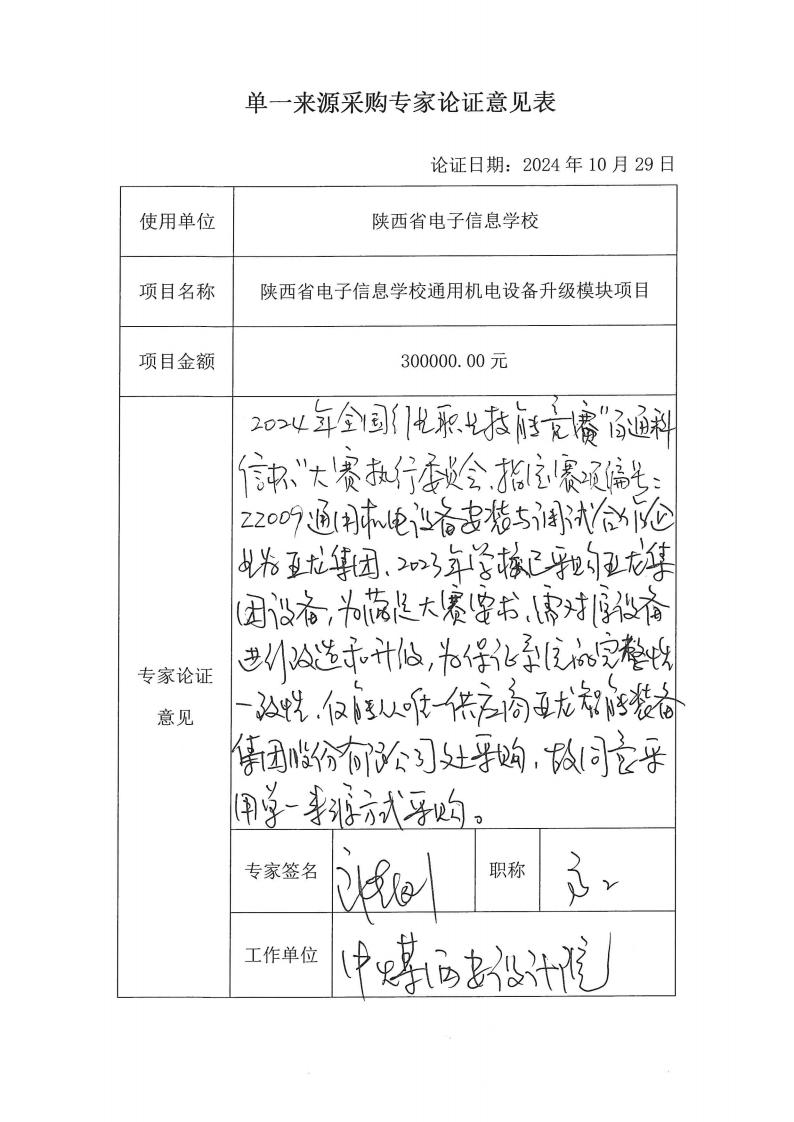 单一来源采购专家论证意见表
论证日期：2024 年 10 月 29 日
使用单位 陕西省电子信息学校
项目名称 陕西省电子信息学校通用机电设备升级模块项目
项目金额 300000.00 元
专家论证意见
2024年全国行业职业技能竞赛"百通科
信杯"大赛执行委员会，指定赛项编号：
ZZ009通用机电设备安装与调试合作企
业为亚龙集团，2023年学校已采购亚龙集
团设备，为满足大赛要求，需对原设备
进行改造和升级，为保证系统的完整性
一致性，仅能从唯一供应商亚龙智能装备
集团股份有限公司处采购，故同意采
用单一来源方式采购。
专家签名 职称 高工
工作单位 中煤西安设计院